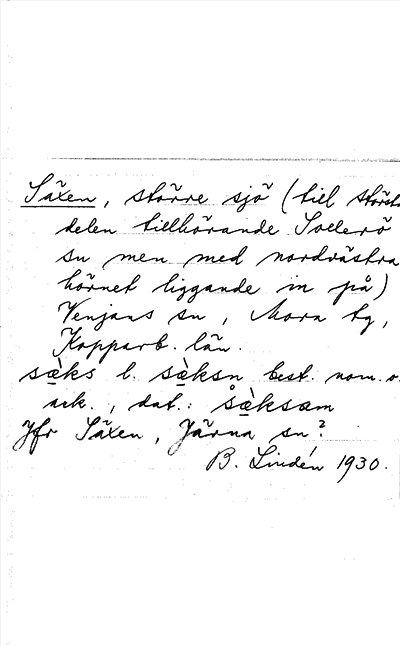 Säxen, större sjö (till största
delen tillhörande Sollerö
sn men med nordvästra
hörnet liggande in på)
Venjans sn, Mora tg,
Kopparb. län.
sæks l. sæksn best. nom. o.
ack., dat.: sæksəm
Jfr Säxen, Järna sn?
B. Lindén 1930.